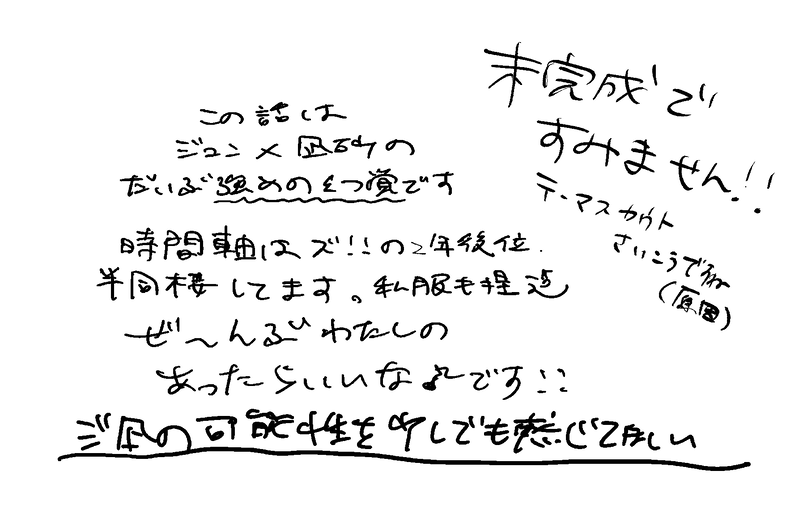 未完成で
すみません!!
テーマスカウト
さいこうですね
(原因)
この話は
ジュン×凪砂の
だいぶ強めの幻覚です
時間軸はズ!!の2年後位.
半同棲してます。私服も捏造
ぜ〜んぶわたしの
あったらいいな♪です!!
ジ凪の可能性を少しでも感じてほしい